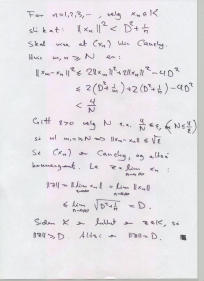 For n=1,2,3,..., velg xₙ∈K
slik at: ‖xₙ‖² < D² + 1/n
Skal vise at (xₙ) er Cauchy.
Hvis m,n ≥ N er:
‖xₘ-xₙ‖² ≤ 2‖xₘ‖²+2‖xₙ‖² - 4D²
≤ 2(D²+1/m)+2(D²+1/n) - 4D²
< 4/N
Gitt ε>0 velg N s.a. 4/N ≤ ε,
så vil m,n ≥ N ⇒ ‖xₘ-xₙ‖ ≤ √ε
Så (xₙ) er Cauchy, og altså
konvergent. La z = lim xₙ :
n→∞
‖z‖ = ‖lim xₙ‖ = lim ‖xₙ‖
n→∞ n→∞
≤ lim √(D²+1/n) = D.
n→∞
Siden K er lukket er z∈K, så
‖z‖ ≥ D. Altså er ‖z‖ = D.